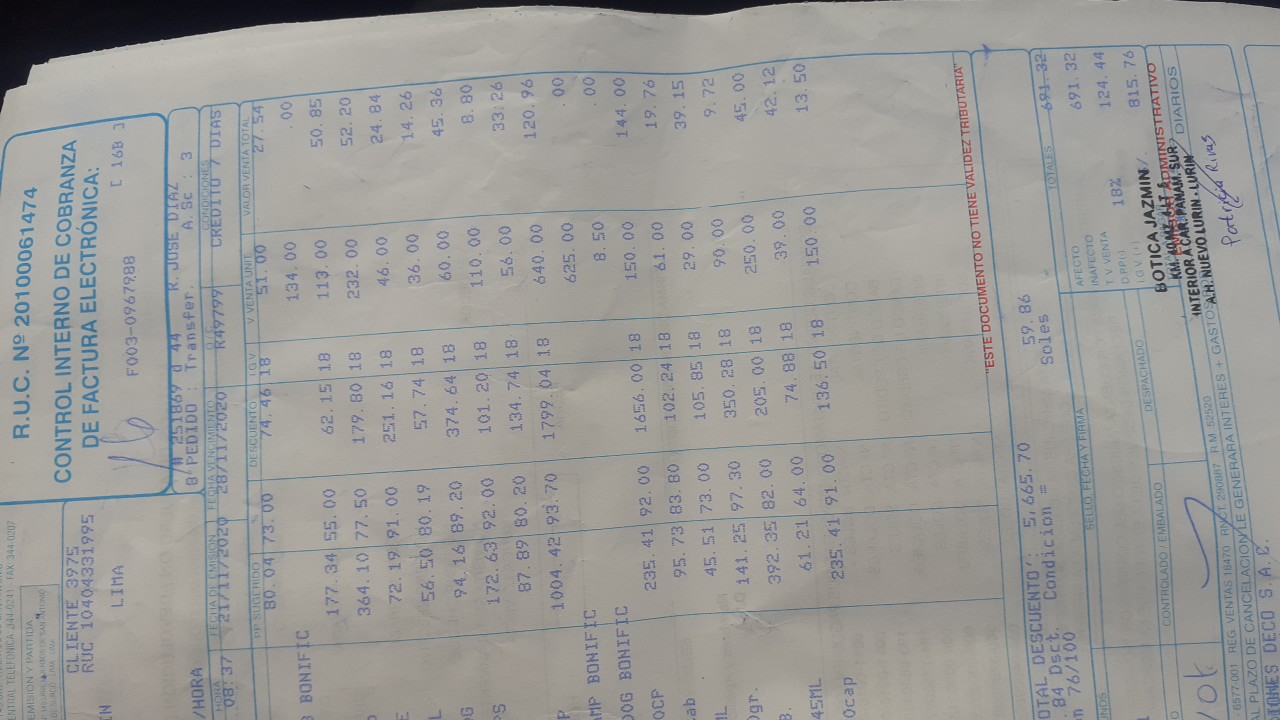 R.U.C. Nº 20100061474
CONTROL INTERNO DE COBRANZA
DE FACTURA ELECTRÓNICA:
F003-0967988 [ 16B ]
CLIENTE 3975
RUC 10404331995
LIMA
# 251869 d 44 R. JOSE DIAZ
PEDIDO : Transfer. A.Sc : 3
/HORA
HORA FECHA DE EMISIÓN FECHA VENCIMIENTO CONDICIONES
08:37 21/11/2020 28/11/2020 R49799 CREDITO 7 DIAS
PP. SUGERIDO % DESCUENTO I.G.V. V. VENTA UNIT. VALOR VENTA TOTAL
80.04 73.00 74.46 18 51.00 27.54
BONIFIC 134.00 .00
177.34 55.00 62.15 18 113.00 50.85
364.10 77.50 179.80 18 232.00 52.20
72.19 91.00 251.16 18 46.00 24.84
56.50 80.19 57.74 18 36.00 14.26
94.16 89.20 374.64 18 60.00 45.36
172.63 92.00 101.20 18 110.00 8.80
87.89 80.20 134.74 18 56.00 33.26
1004.42 93.70 1799.04 18 640.00 120.96
AMP BONIFIC 625.00 .00
DOG BONIFIC 8.50 .00
OCP 235.41 92.00 1656.00 18 150.00 144.00
ab 95.73 83.80 102.24 18 61.00 19.76
IL 45.51 73.00 105.85 18 29.00 39.15
Ogr. 141.25 97.30 350.28 18 90.00 9.72
B. 392.35 82.00 205.00 18 250.00 45.00
45ML 61.21 64.00 74.88 18 39.00 42.12
Ocap 235.41 91.00 136.50 18 150.00 13.50
"ESTE DOCUMENTO NO TIENE VALIDEZ TRIBUTARIA"
OTAL DESCUENTO : 5,665.70 59.86
84 Dsct. Condicion = Soles
n 76/100
TOTALES 691.32
AFECTO 691.32
INAFECTO
T.V VENTA 18% 124.44
815.76
SELLO, FECHA Y FIRMA
CONTROLADO / EMBALADO
DESPACHADO
ADMINISTRATIVO
BOTICA JAZMIN
KM. 40 MZ. ALT A
INTERIOR CAR. PANAM. SUR
A.H. NUEVO LURIN - LURIN
DIARIOS
Rivas
6577-001 REG. VENTAS 18470
AL PLAZO DE CANCELACION LE GENERARA INTERES + GASTOS
IONES DECO S.A.C.